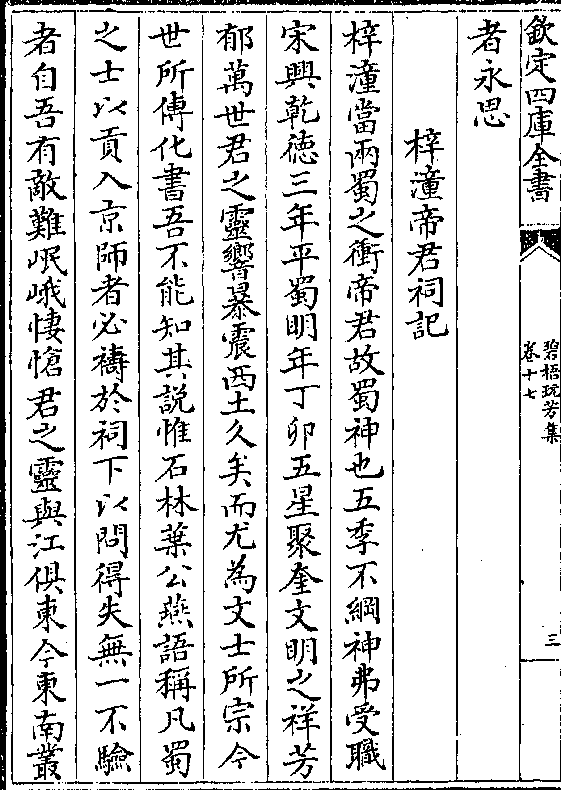 欽定四庫全書
碧梧玩芳集
卷十七
三
者永思
梓潼帝君祠記
梓潼當兩蜀之衝帝君故蜀神也五季不綱神弗受職
宋興乾德三年平蜀明年丁卯五星聚奎文明之祥芳
郁萬世君之靈響暴震西土久矣而尤為文士所宗今
世所傳化書吾不能知其說惟石林葉公燕語稱凡蜀
之士以貢入京師者必禱於祠下以問得失無一不驗
者自吾有敵難岷峨悽愴君之靈與江俱東今東南叢